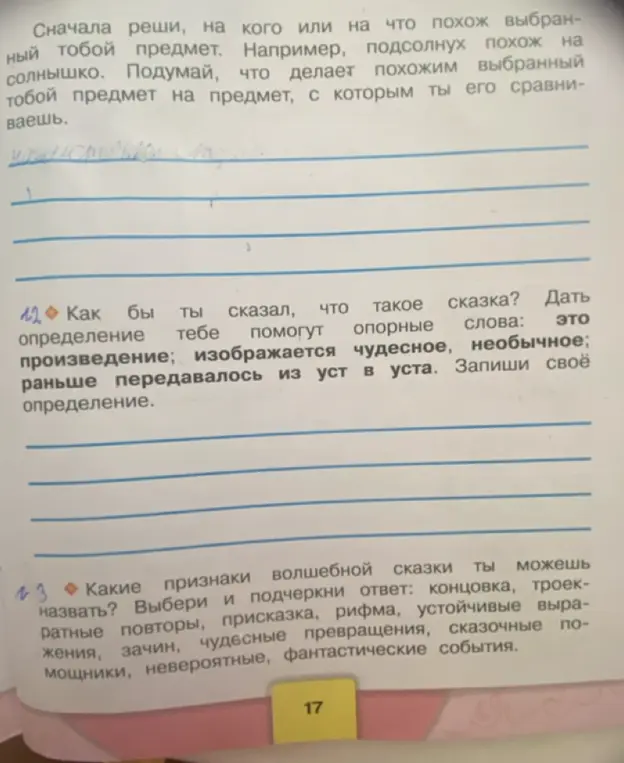 Сначала реши, на кого или на что похож выбран-
ный тобой предмет. Например, подсолнух похож на
солнышко. Подумай, что делает похожим выбранный
тобой предмет на предмет, с которым ты его сравни-
ваешь.
12 Как бы ты сказал, что такое сказка? Дать
определение тебе помогут опорные слова: это
произведение; изображается чудесное, необычное;
раньше передавалось из уст в уста. Запиши своё
определение.
13 Какие признаки волшебной сказки ты можешь
назвать? Выбери и подчеркни ответ: концовка, троек-
ратные повторы, присказка, рифма, устойчивые выра-
жения, зачин, чудесные превращения, сказочные по-
мощники, невероятные, фантастические события.
17